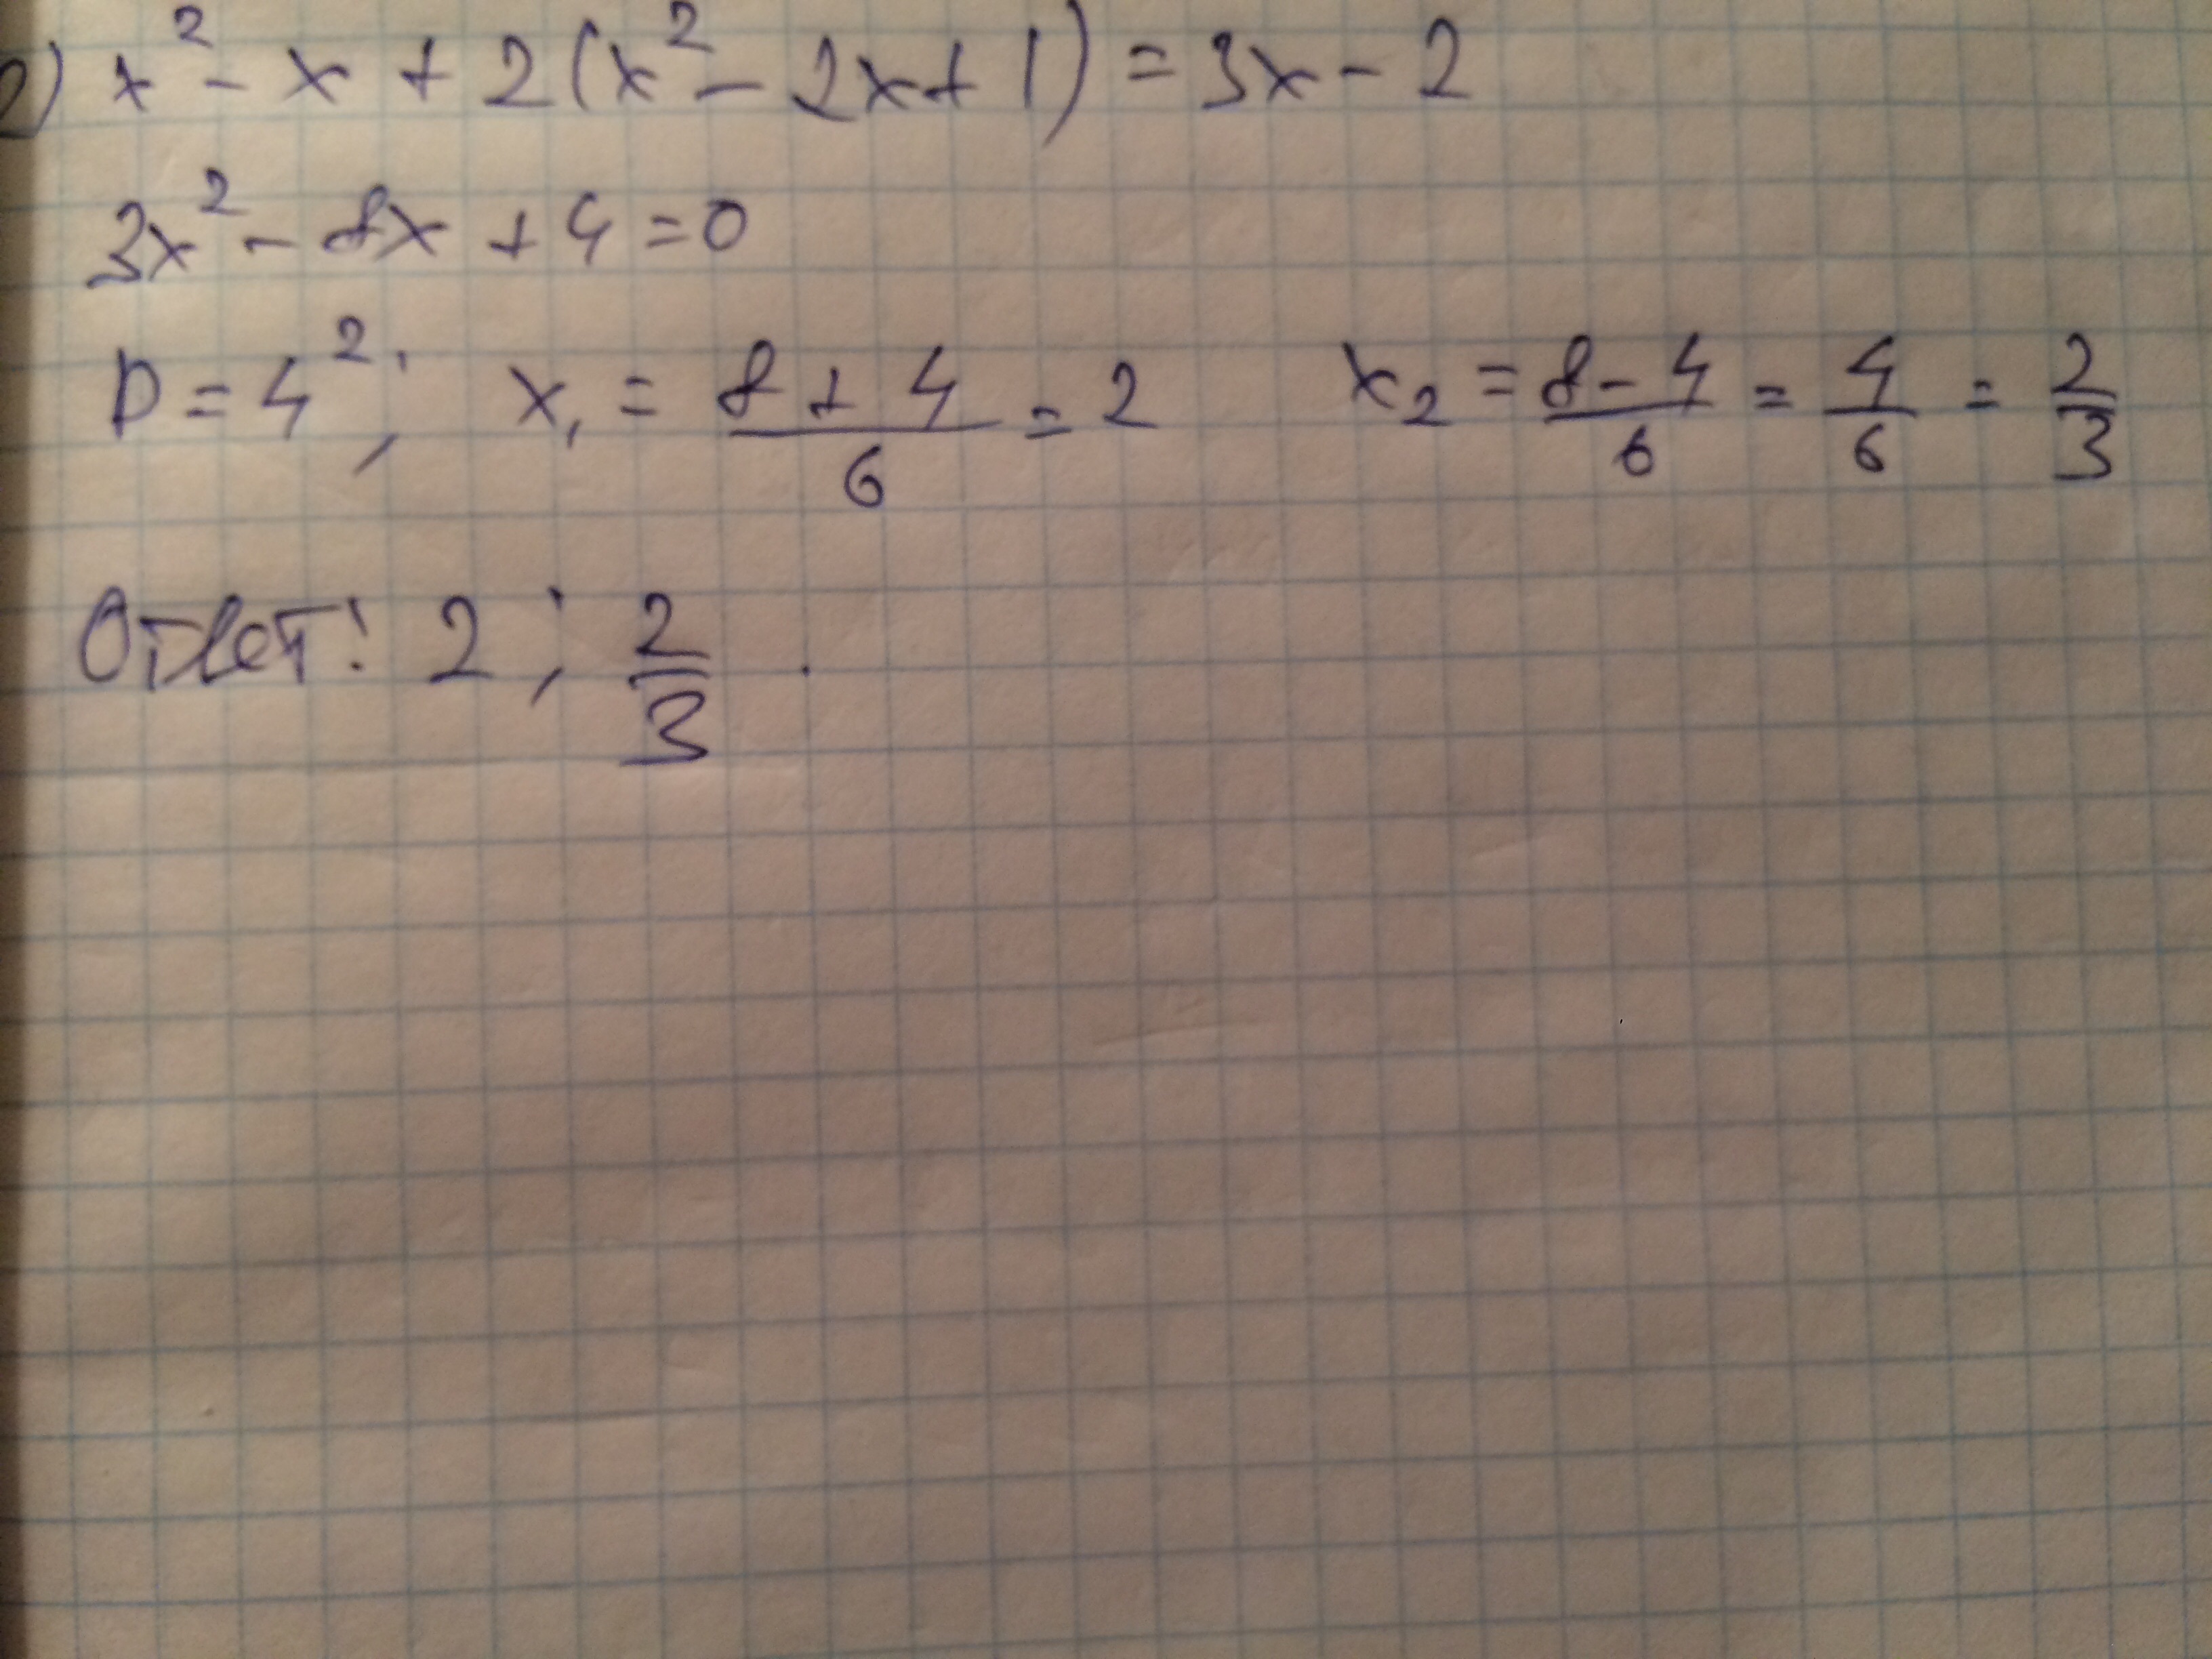 ) x² - x + 2(x² - 2x + 1) = 3x - 2
3x² - 8x + 4 = 0
D = 4²; x₁ = (8 + 4)/6 = 2 x₂ = (8 - 4)/6 = 4/6 = 2/3
Ответ: 2; 2/3.